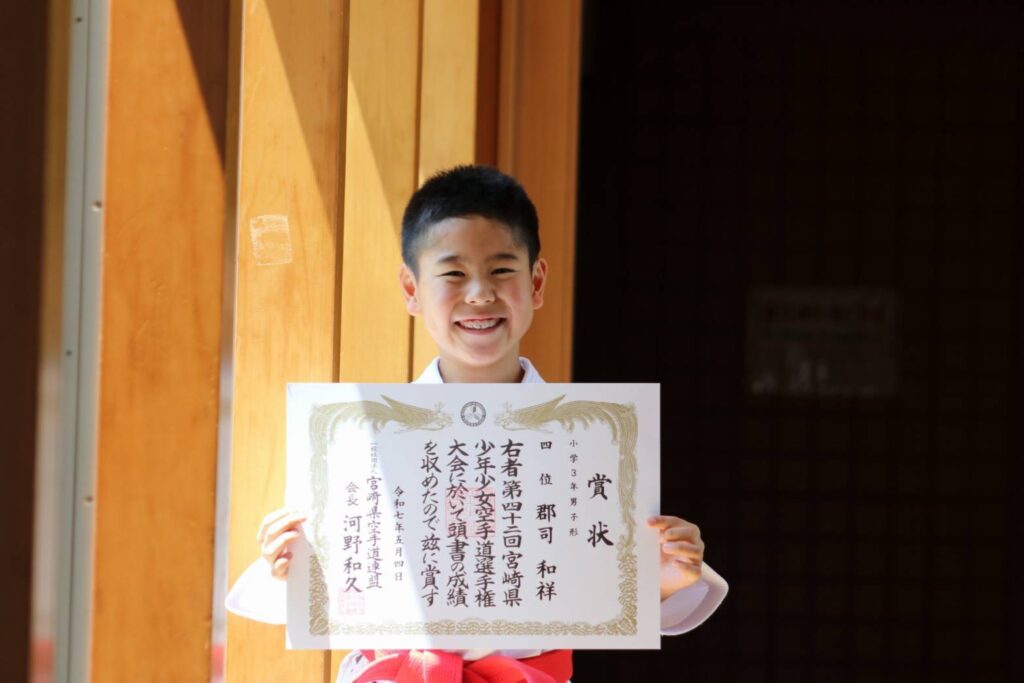 賞状
小学3年男子形
四位 郡司 和祥
右者第四十二回宮崎県
少年少女空手道選手権
大会に於いて頭書の成績
を収めたので茲に賞す
令和七年五月四日
一般社団法人 宮崎県空手道連盟
会長 河野和久